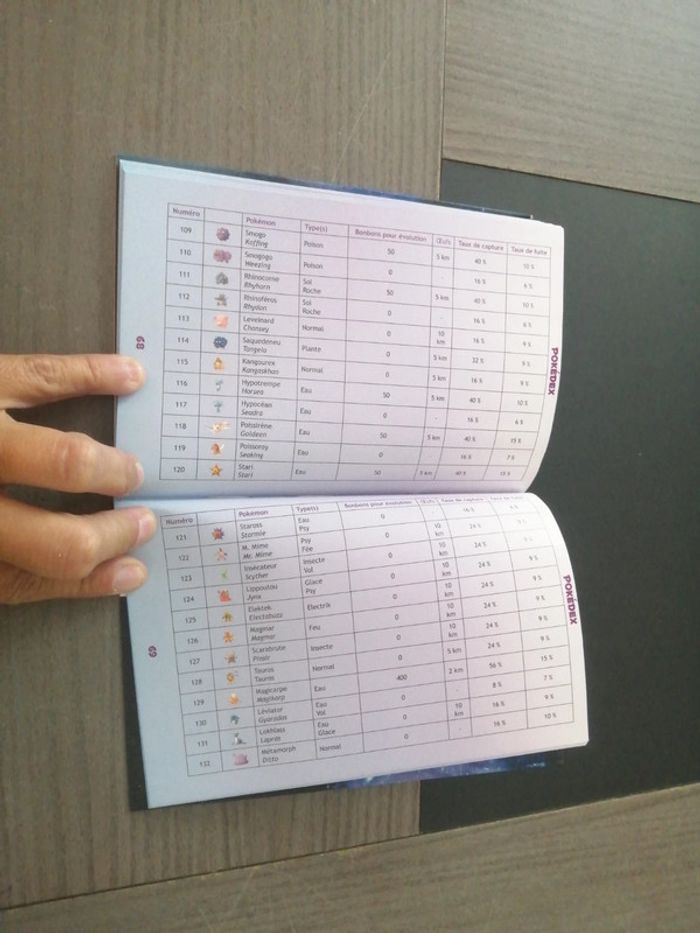 POKÉDEX
Numéro Pokémon Type(s) Bonbons pour évolution Œufs Taux de capture Taux de fuite
109 Smogo Koffing Poison 50 5 km 40 % 10 %
110 Smogogo Weezing Poison 0 - 16 % 6 %
111 Rhinocorne Rhyhorn Sol Roche 50 5 km 40 % 10 %
112 Rhinoféros Rhydon Sol Roche 0 - 16 % 6 %
113 Leveinard Chansey Normal 0 10 km 16 % 9 %
114 Saquedeneu Tangela Plante 0 5 km 32 % 9 %
115 Kangourex Kangaskhan Normal 0 5 km 16 % 9 %
116 Hypotrempe Horsea Eau 50 5 km 40 % 10 %
117 Hypocéan Seadra Eau 0 - 16 % 6 %
118 Poissirène Goldeen Eau 50 5 km 40 % 15 %
119 Poissoroy Seaking Eau 0 - 16 % 7 %
120 Stari Stari Eau 50 5 km 40 % 15 %
68
POKÉDEX
Numéro Pokémon Type(s) Bonbons pour évolution Œufs Taux de capture Taux de fuite
121 Staross Starmie Eau Psy 0 - 16 % 6 %
122 M. Mime Mr. Mime Psy Fée 0 10 km 24 % 9 %
123 Insécateur Scyther Insecte Vol 0 10 km 24 % 9 %
124 Lippoutou Jynx Glace Psy 0 10 km 24 % 9 %
125 Elektek Electabuzz Electrik 0 10 km 24 % 9 %
126 Magmar Magmar Feu 0 10 km 24 % 9 %
127 Scarabrute Pinsir Insecte 0 10 km 24 % 9 %
128 Tauros Tauros Normal 0 5 km 24 % 9 %
129 Magicarpe Magikarp Eau 400 2 km 56 % 15 %
130 Léviator Gyarados Eau Vol 0 - 8 % 7 %
131 Lokhlass Lapras Eau Glace 0 10 km 16 % 9 %
132 Métamorph Ditto Normal 0 - 16 % 10 %
69